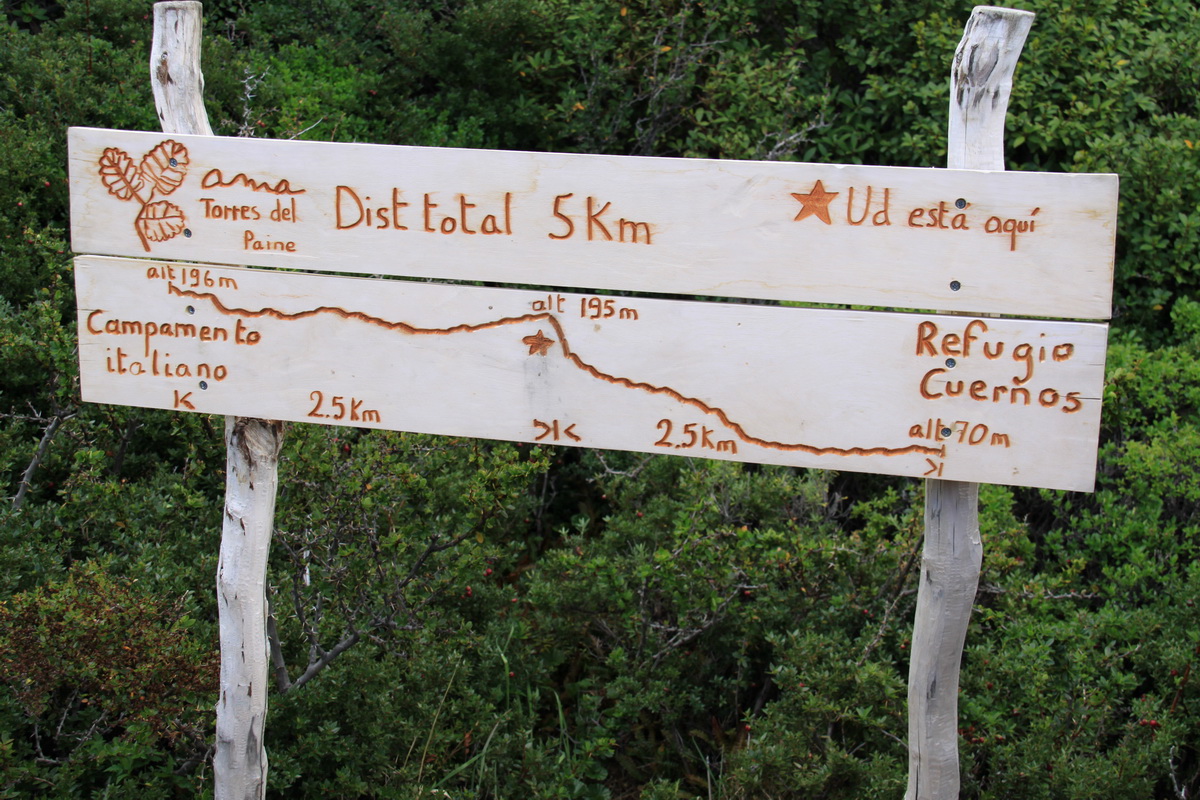 ama
Torres del
Paine
Dist total 5Km
Ud está aquí
alt 196m
alt 195m
Campamento
italiano
Refugio
Cuernos
2.5Km
2.5Km
alt 70m